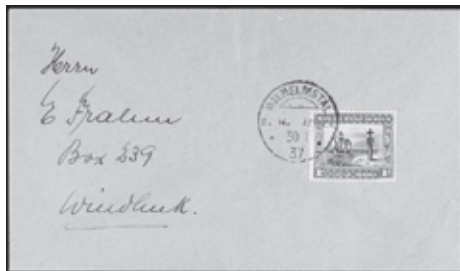 Herrn
E Frahm
Box 239
Windhuk.
WILHELMSTAL
S. W. A
30
37